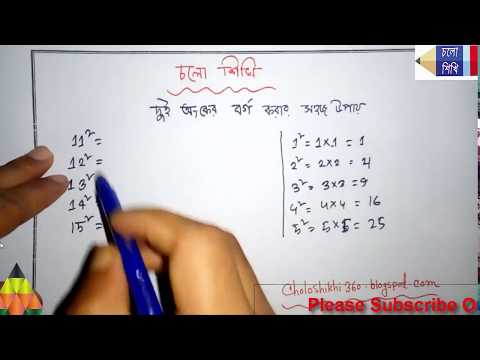 চলো শিখি
চলো
শিখি
দুই অংকের বর্গ করার সহজ উপায়
11² =
12² =
13²
14²
15² =
1² = 1×1 = 1
2² = 2×2 = 4
3² = 3×3 = 9
4² = 4×4 = 16
5² = 5×5 = 25
Choloshikhi360.blogspot.com
Please Subscribe O